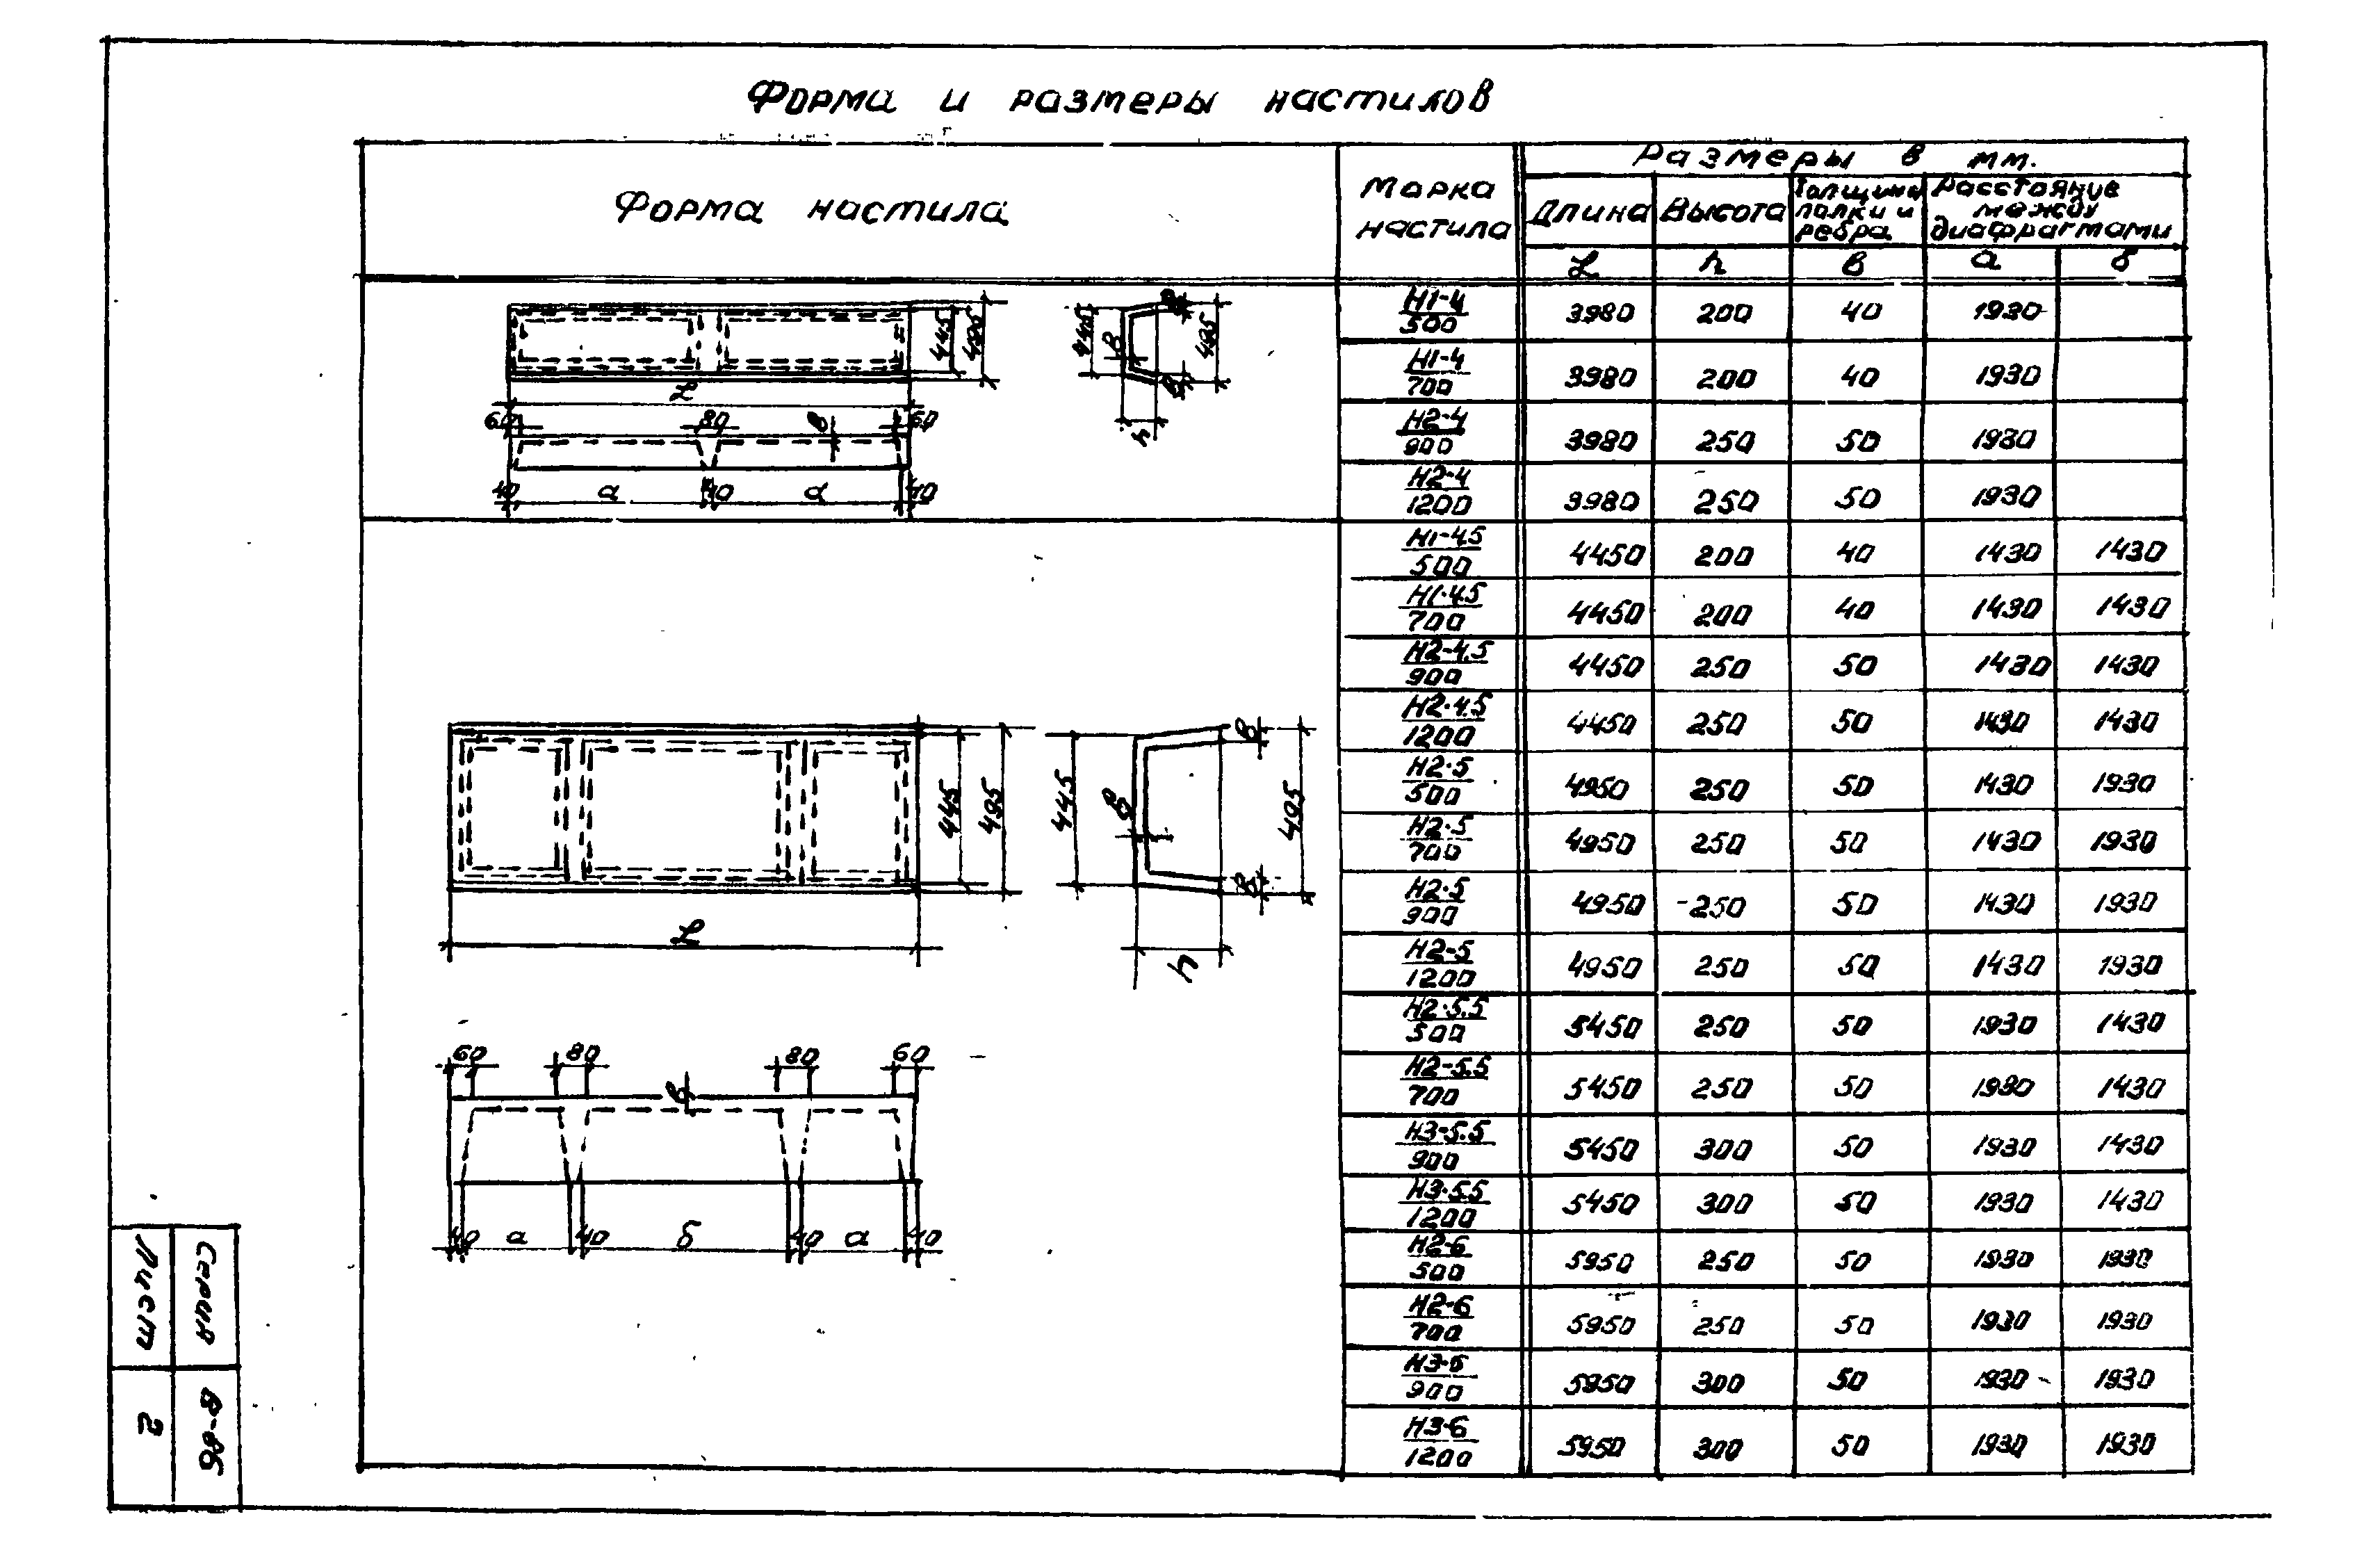 Форма и размеры настилов
Форма настила
Марка настила
Размеры в мм.
Длина
Высота
Толщина полки и ребра
Расстояние между диафрагмами
L h в а б
Н1-4/500 3980 200 40 1930
Н1-4/700 3980 200 40 1930
Н2-4/900 3980 250 50 1930
Н2-4/1200 3980 250 50 1930
Н1-4.5/500 4450 200 40 1430 1430
Н1-4.5/700 4450 200 40 1430 1430
Н2-4.5/900 4450 250 50 1430 1430
Н2-4.5/1200 4450 250 50 1430 1430
Н2-5/500 4950 250 50 1430 1930
Н2-5/700 4950 250 50 1430 1930
Н2-5/900 4950 250 50 1430 1930
Н2-5/1200 4950 250 50 1430 1930
Н2-5.5/500 5450 250 50 1930 1430
Н2-5.5/700 5450 250 50 1930 1430
Н3-5.5/900 5450 300 50 1930 1430
Н3-5.5/1200 5450 300 50 1930 1430
Н2-6/500 5950 250 50 1930 1930
Н2-6/700 5950 250 50 1930 1930
Н3-6/900 5950 300 50 1930 1930
Н3-6/1200 5950 300 50 1930 1930
445 495
L
60 80 в 60
40 а 40 а 40
445 в в в 495
h
445 495
L
445 в в в 495
h
60 80 80 60
в
40 а 40 б 40 а 40
Серия В-86
Лист 2